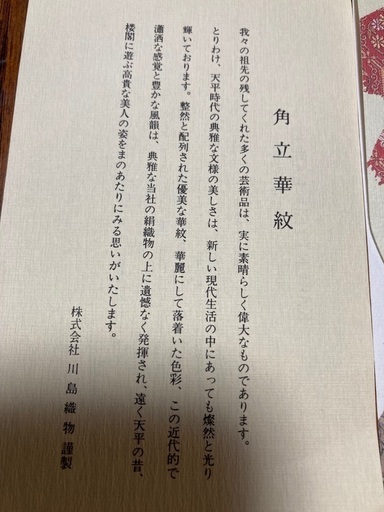 角立華紋
我々の祖先の残してくれた多くの芸術品は、実に素晴らしく偉大なものであります。
とりわけ、天平時代の典雅な文様の美しさは、新しい現代生活の中にあっても燦然と光り
輝いております。整然と配列された優美な華紋、華麗にして落着いた色彩、この近代的で
瀟洒な感覚と豊かな風韻は、典雅な当社の絹織物の上に遺憾なく発揮され、遠く天平の昔、
楼閣に遊ぶ高貴な美人の姿をまのあたりにみる思いがいたします。
株式会社 川島織物謹製